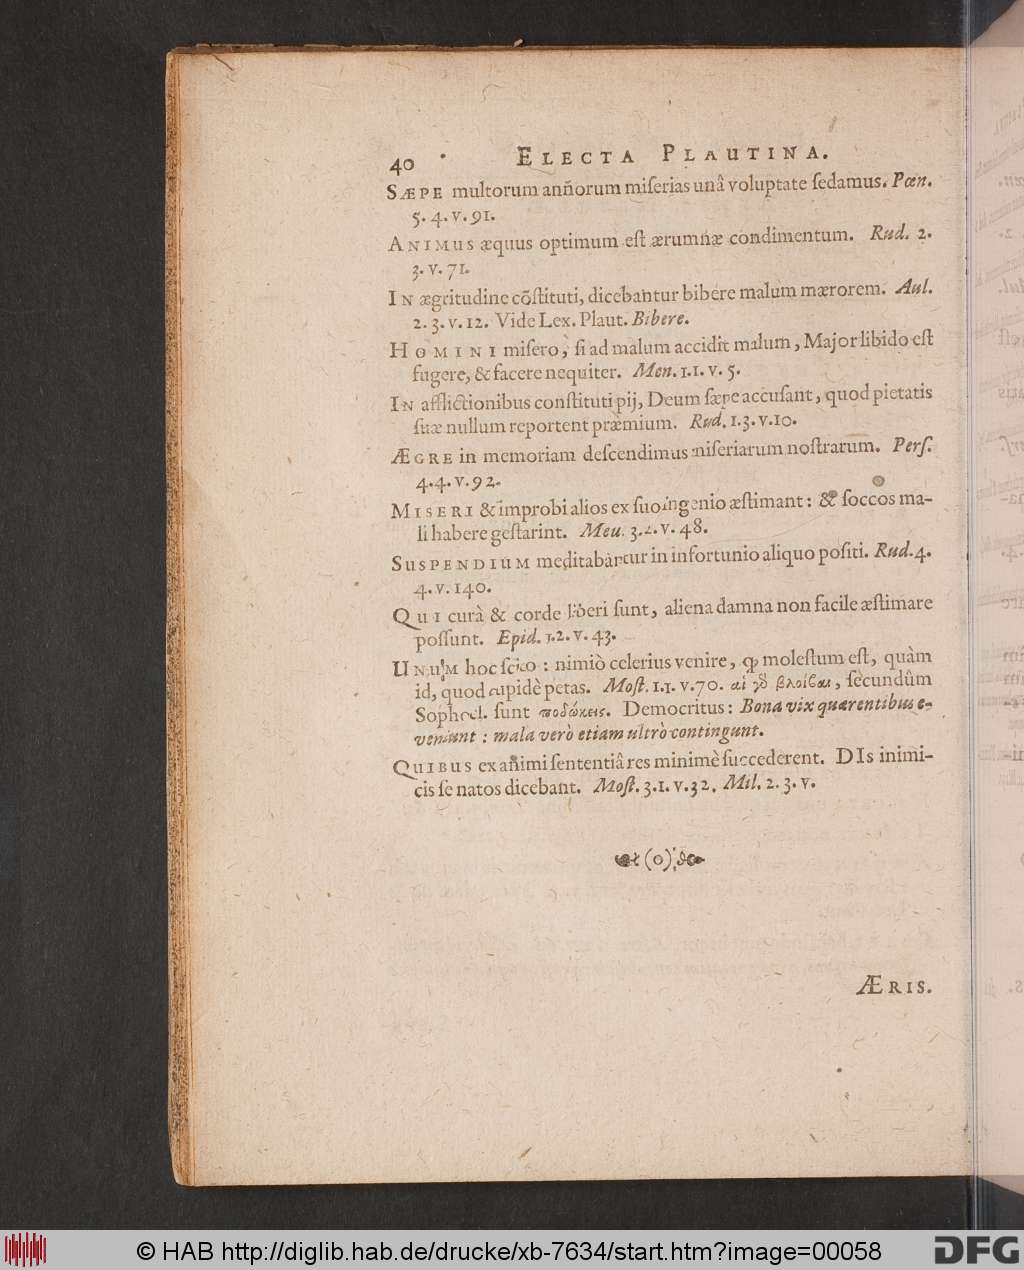 40 ELECTA PLAUTINA.
SÆPE multorum anñorum miſerias unâ voluptate ſedamus. Pœn.
5. 4. v. 91.
ANIMUS æquus optimum eſt ærumnæ condimentum. Rud. 2.
3. v. 71.
IN ægritudine cõſtituti, dicebantur bibere malum mærorem. Aul.
2. 3. v. 12. Vide Lex. Plaut. Bibere.
HOMINI miſero, ſi ad malum accidit malum, Major libido eſt
fugere, & facere nequiter. Men. 1.1. v. 5.
IN afflictionibus conſtituti pij, Deum ſæpe accuſant, quod pietatis
ſuæ nullum reportent præmium. Rud. 1.3. v.10.
ÆGRE in memoriam deſcendimus miſeriarum noſtrarum. Perſ.
4.4. v. 92.
MISERI & improbi alios ex ſuo ingenio æſtimant: & ſoccos ma-
li habere geſtarint. Meu. 3.2. v. 48.
SUSPENDIUM meditabantur in infortunio aliquo poſiti. Rud. 4.
4. v. 140.
QUI curà & corde liberi ſunt, aliena damna non facile æſtimare
poſſunt. Epid. 1.2. v. 43.
UNUM hoc ſcito: nimiò celerius venire, ꝙ moleſtum eſt, quàm
id, quod cupidè petas. Moſt. 1.1. v. 70. αἱ γδ βλάβαι, ſecundûm
Sophocl. ſunt ποδώκεις. Democritus: Bona vix quærentibus e-
veniunt: mala verò etiam ultrò contingunt.
QUIBUS ex animi ſententiâ res minimè ſuccederent. DIs inimi-
cis ſe natos dicebant. Moſt. 3.1. v. 32. Mil. 2. 3. v.
(o)
ÆRIS.
© HAB http://diglib.hab.de/drucke/xb-7634/start.htm?image=00058
DFG